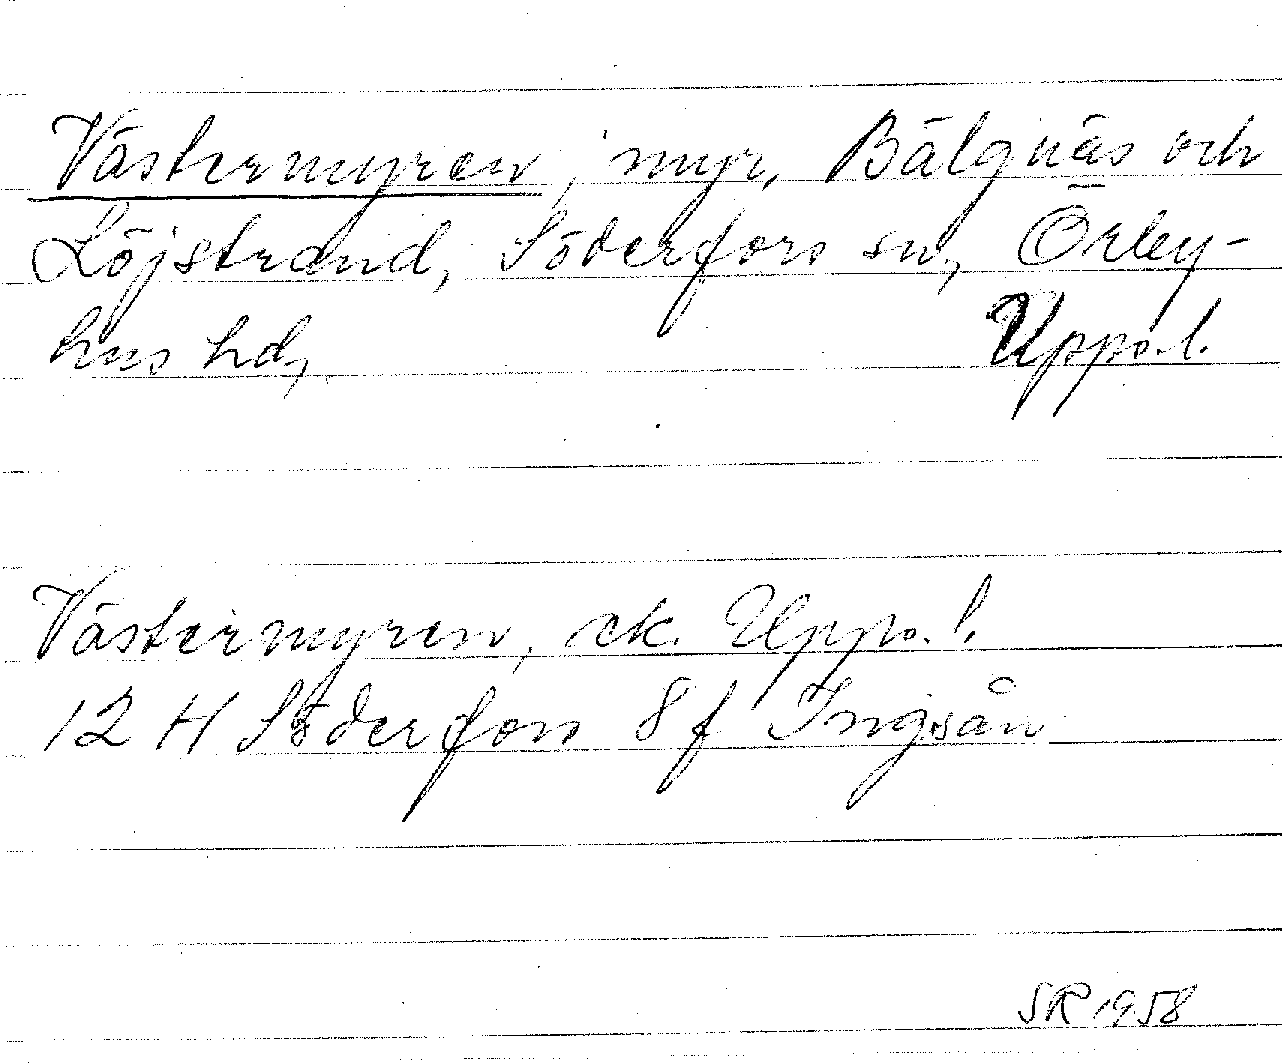 Västermyren, myr, Bälgnäs och
Löjstrand, Söderfors sn, Örby-
hus hd, Upps.l.
Västermyren, ek. Upps.l.
12 H Söderfors 8f Ingsån
SR 1958